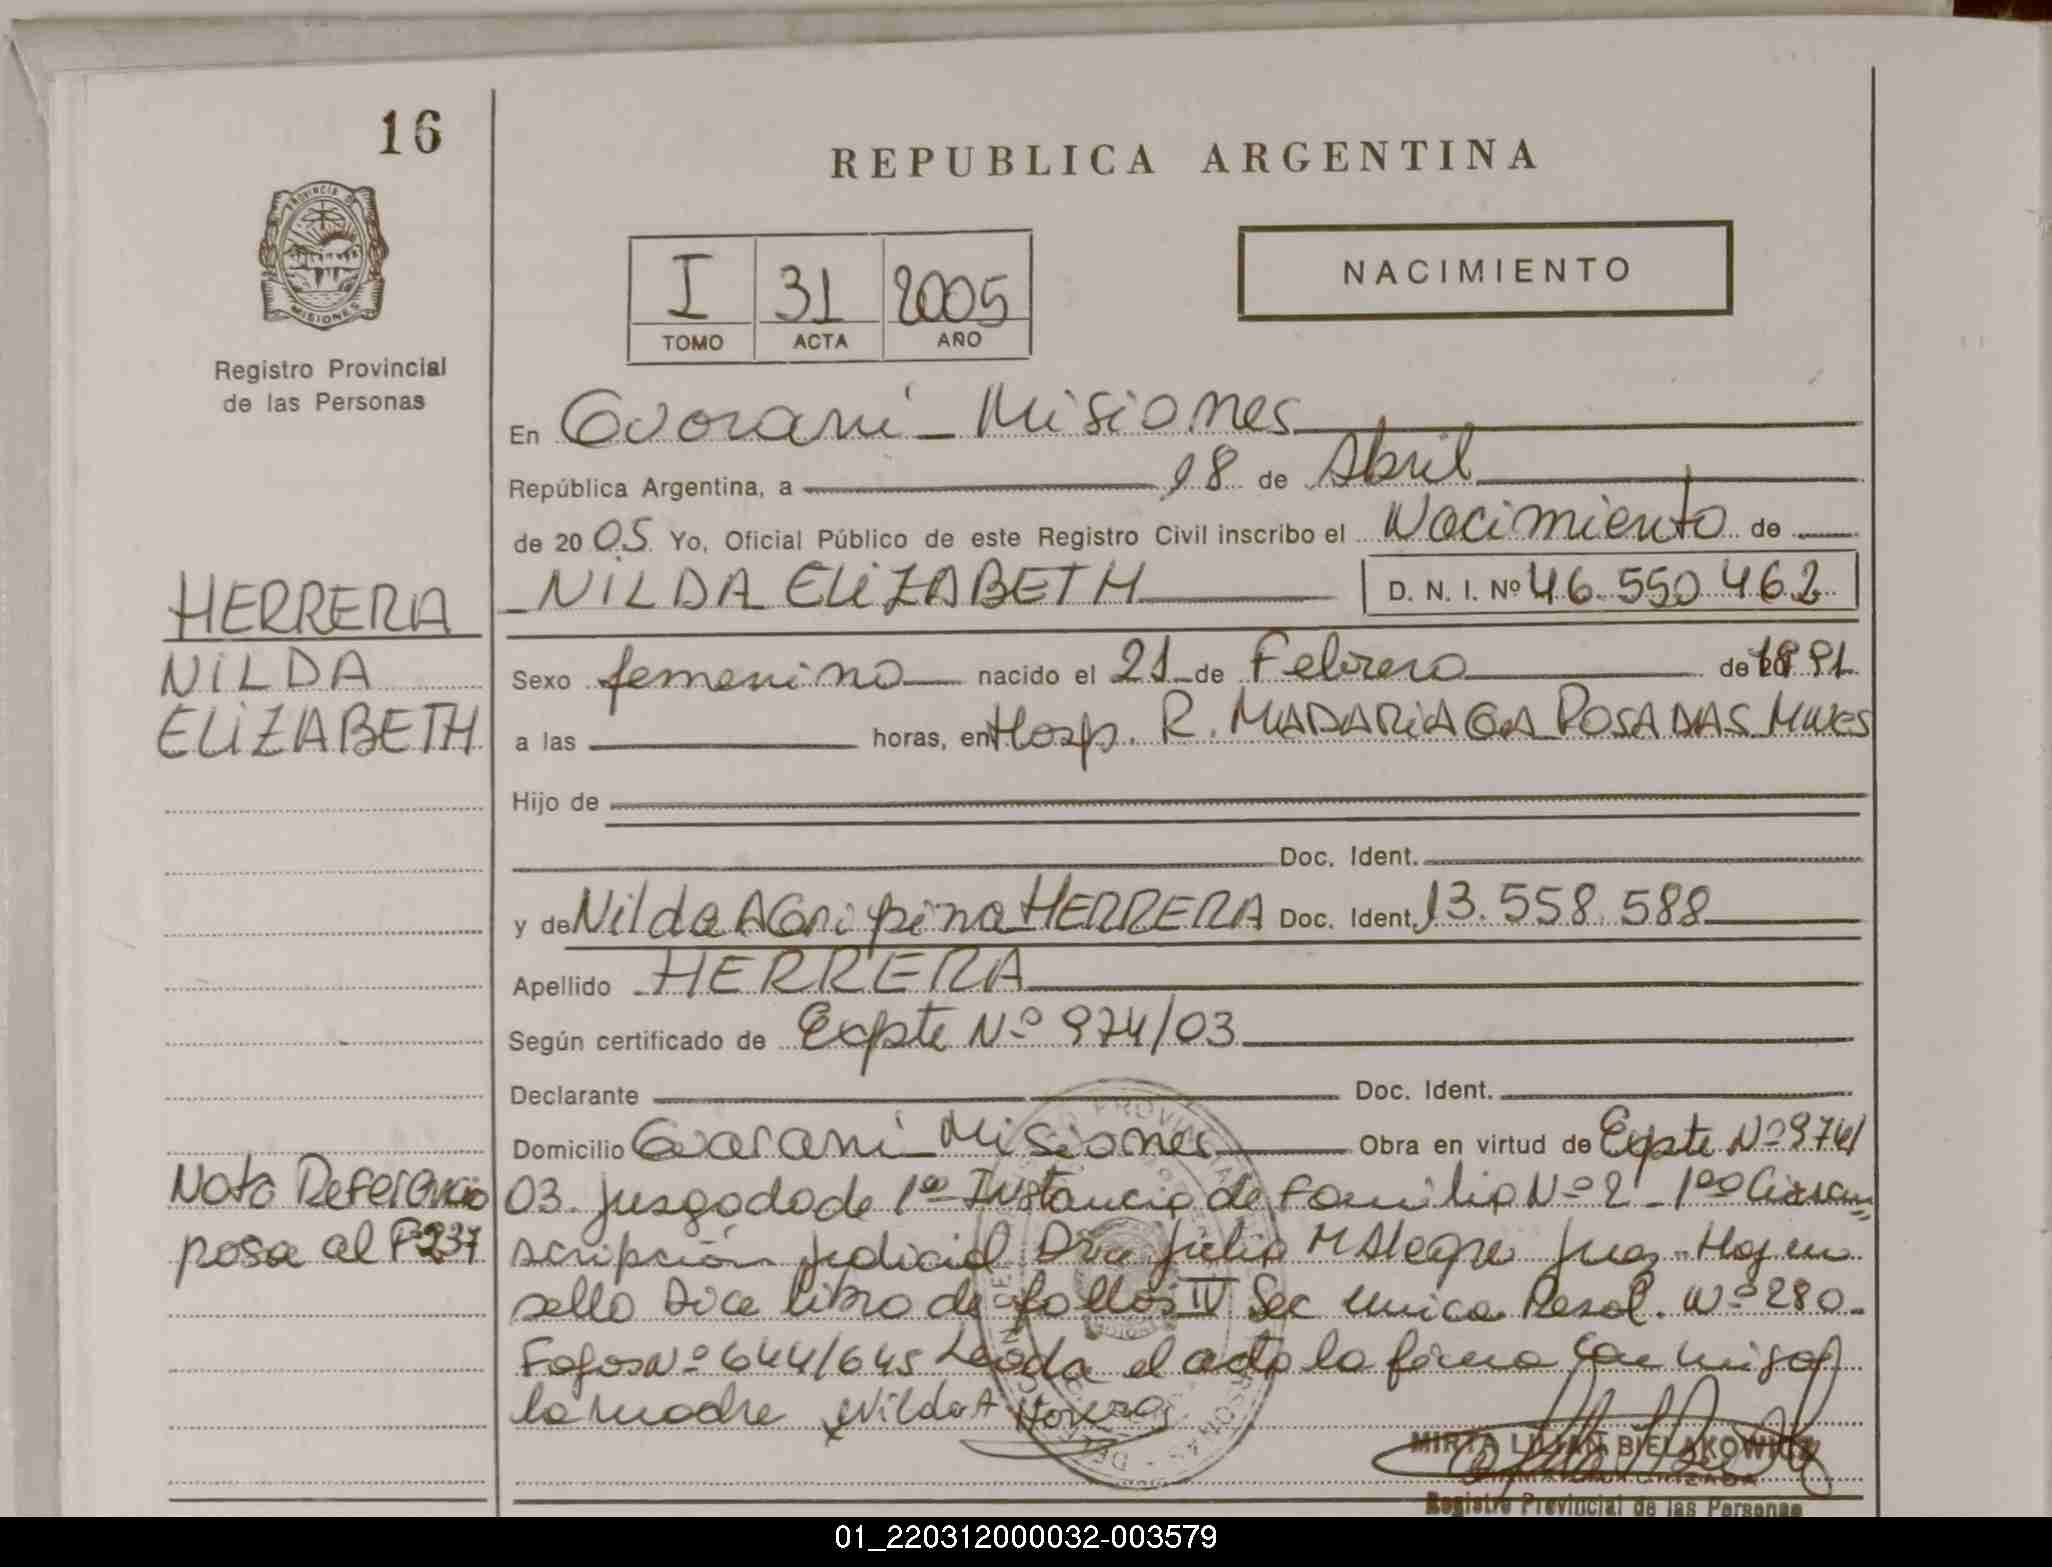 16
REPUBLICA ARGENTINA
PROVINCIA DE
MISIONES
Registro Provincial
de las Personas
I 31 2005
TOMO ACTA AÑO
NACIMIENTO
En Guarani - Misiones
República Argentina, a 18 de Abril
de 2005 Yo, Oficial Público de este Registro Civil inscribo el Nacimiento de
NILDA ELIZABETH D. N. I. Nº 46.550.462
HERRERA
NILDA
ELIZABETH
Sexo femenino nacido el 21 de Febrero de 1991
a las horas, en Hosp. R. MADARIAGA POSADAS MNES
Hijo de
Doc. Ident.
y de Nilda AGripina HERRERA Doc. Ident. 13.558.588
Apellido HERRERA
Según certificado de Expte Nº 974/03
Declarante Doc. Ident.
Domicilio Guarani - Misiones Obra en virtud de Expte Nº 974/
Nota Referencia
pasa al Fº 237
03. Jusgado de 1ª Instancia de Familia Nº 2 - 1ª Circun=
scripción Judicial Dra Julia M Alegre Juez - Hay un
sello Dice libro de fallos IV Sec unica Resol. Nº 280-
Fojos Nº 644/645 Leida el acta la firma conmigo
la madre Nilda A Herrera
MIRTA LILIAN BIELAKOWICZ
Registro Provincial de las Personas
01_220312000032-003579